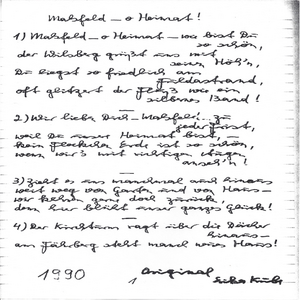 Malsfeld – o Heimat!
1) Malsfeld – o Heimat – wo bist Du
so schön,
der Wilsberg grüßt uns mit
seinen Höh'n,
Du liegst so friedlich am
Feldesstrand,
oft glitzert der Fluß wie ein
silbernes Band!
2) Wir lieben Dich – Malsfeld zu
jeder Frist,
weil Du unser Heimat bist,
kein Fleckchen Erde ist so schön,
wenn wir's mit richtigen Augen
anseh'n!
3) Zieht es uns manchmal auch hinaus
weit weg von Garten und von Haus –
wir kehren gern doch zurück,
denn hier blüht unser ganzes Glück!
4) Der Kirchturm ragt über die Dächer
hinaus –
am Fährberg steht manch neues Haus!
1990
Original
1